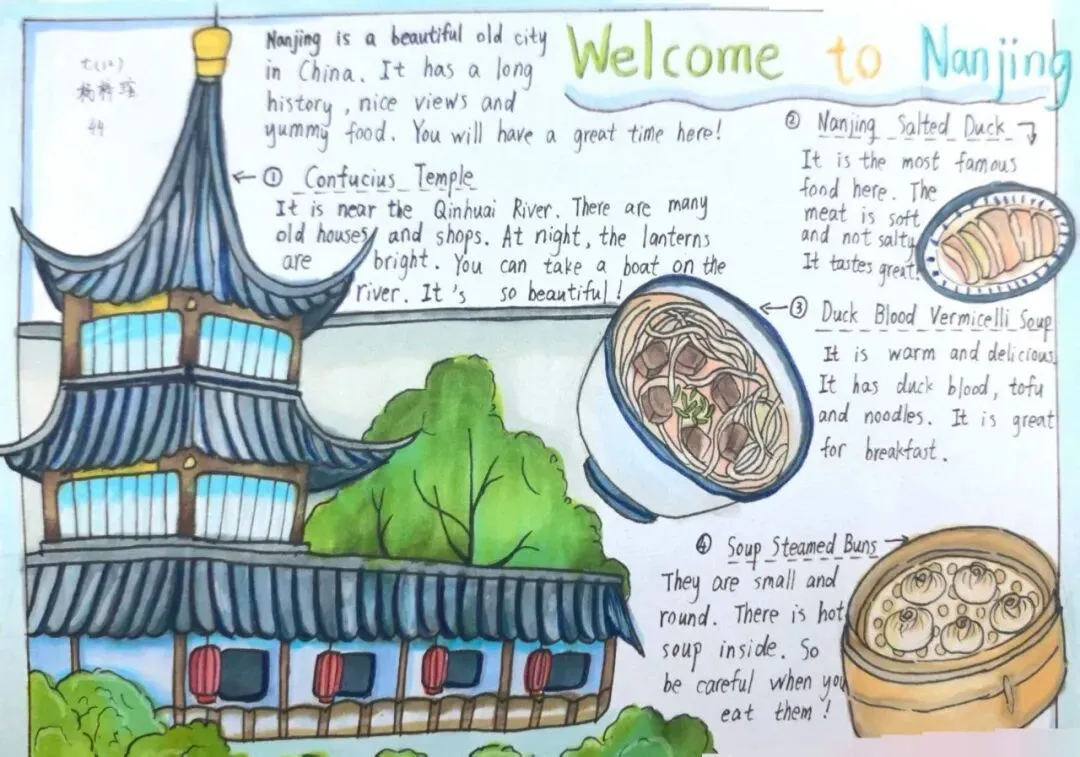 七(12)
杨梓瑶
44
Nanjing is a beautiful old city
in China. It has a long
history, nice views and
yummy food. You will have a great time here!
Welcome to Nanjing
① Confucius Temple
It is near the Qinhuai River. There are many
old houses and shops. At night, the lanterns
are bright. You can take a boat on the
river. It's so beautiful!
② Nanjing Salted Duck
It is the most famous
food here. The
meat is soft
and not salty
It tastes great!
③ Duck Blood Vermicelli Soup
It is warm and delicious.
It has duck blood, tofu
and noodles. It is great
for breakfast.
④ Soup Steamed Buns
They are small and
round. There is hot
soup inside. So
be careful when you
eat them!